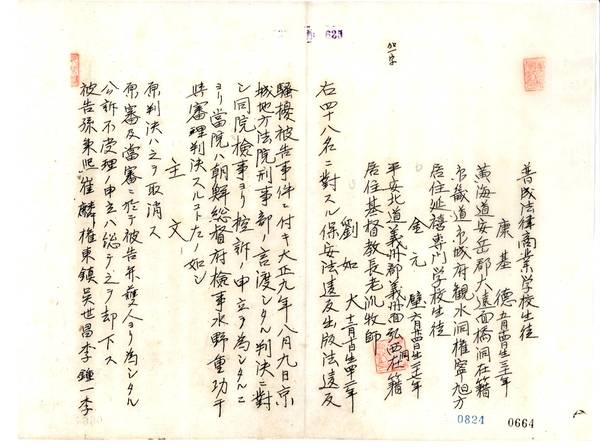 普成法律商業学校生徒
康基徳
黄海道安岳郡大遠面橋洞在籍
京畿道京城府観水洞権寧旭方
居住延禧専門学校生徒
金元璧
平安北道義州郡義州面弘西洞在籍
居住基督教長老派牧師
劉如大
右四十八名ニ対スル保安法違反出版法違反
騒擾被告事件ニ付キ大正九年八月九日京
城地方法院刑事部ノ言渡シタル判決ニ対
シ同院検事ヨリ控訴ノ申立ヲ為シタルニ
ヨリ当院ハ朝鮮総督府検事水野重功干
与審理判決スルコト左ノ如シ
主文
原判決ハ之ヲ取消ス
原審及当審ニ於テ被告并弁護人ヨリ為シタル
公訴不受理ノ申立ハ総テ之ヲ却下ス
被告孫秉熙崔麟権東鎮呉世昌李鍾一李
0824
0664